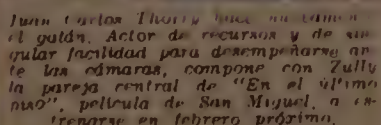 Juan Carlos Thorry hace
el galán. Actor de recursos y de sin-
gular facilidad para desempeñarse an-
te las cámaras, compone con Zully
la pareja central de "En el último
piso", película de San Miguel, a es-
trenarse en febrero próximo.